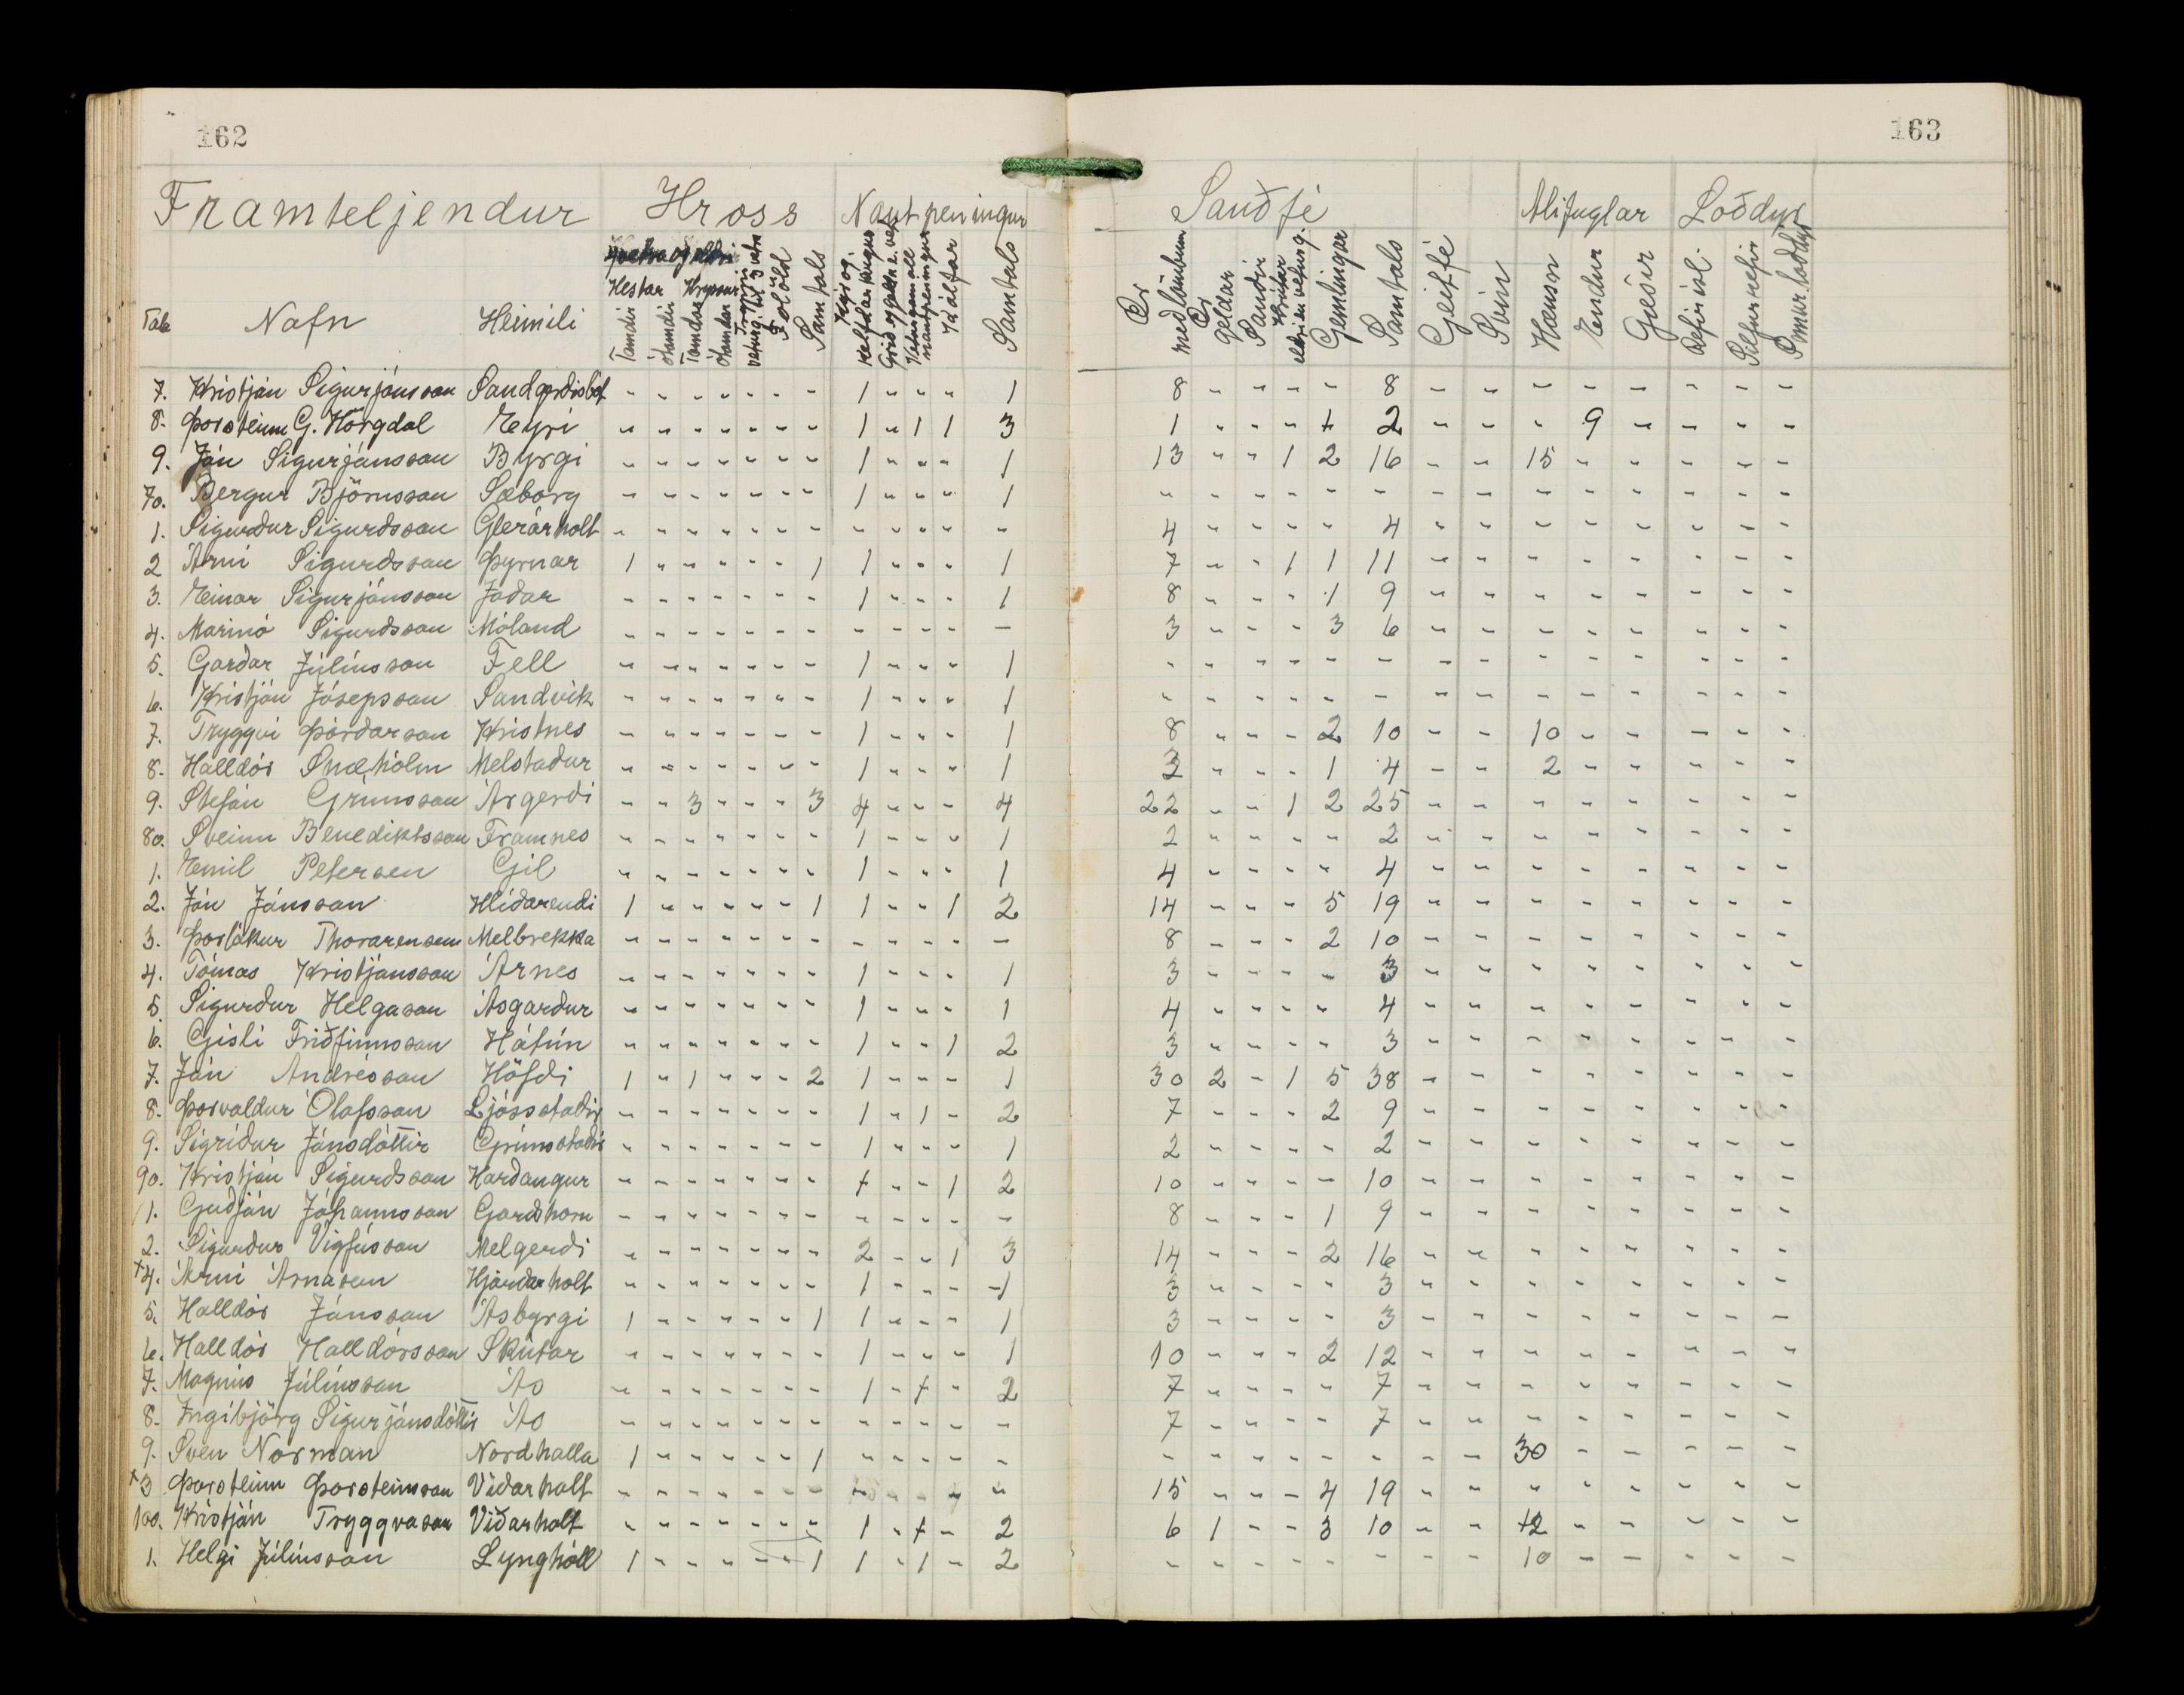 162
163
Framteljendur Hross Nautpeningur Sauðfé Alifuglar Loðdýr
Hestar Hryssur
Tala Nafn Heimili Tamdir Ótamdir Tamdar Ótamdar Folöld Samtals Kýr og kelfdar kvígur Kálfar Samtals Ær með lömbum Ær geldar Sauðir Hrútar Gemlingar Samtals Geitfé Svín Hænsn Endur Gæsir Refir ísl. Silfurrefir Önnur loðdýr
7. Kristján Sigurjónsson Sandgerðisbót - - - - - - - 1 - - - 1 8 - - - - 8 - - - - - - - -
8. Þorsteinn G. Hörgdal Eyri - - - - - - - 1 - 1 1 3 1 - - - 1 2 - - - 9 - - - -
9. Jón Sigurjónsson Byrgi - - - - - - - 1 - - - 1 13 - - 1 2 16 - - 15 - - - - -
70. Bergur Björnsson Sæborg - - - - - - - 1 - - - 1 - - - - - - - - - - - - - -
1. Sigurður Sigurdsson Glerárholt - - - - - - - - - - - - 4 - - - - 4 - - - - - - - -
2 Árni Sigurdsson Þyrnar 1 - - - - - 1 1 - - - 1 7 - - 1 1 11 - - - - - - - -
3. Einar Sigurjónsson Jaðar - - - - - - - 1 - - - 1 8 - - - 1 9 - - - - - - - -
4. Marinó Sigurdsson Móland - - - - - - - - - - - - 3 - - - 3 6 - - - - - - - -
5. Garðar Júlíusson Fell - - - - - - - 1 - - - 1 - - - - - - - - - - - - - -
6. Kristján Jósepsson Sandvík - - - - - - - 1 - - - 1 - - - - - - - - - - - - - -
7. Tryggvi Þórðarson Kristnes - - - - - - - 1 - - - 1 8 - - - 2 10 - - 10 - - - - -
8. Halldór Snæhólm Melstaður - - - - - - - 1 - - - 1 3 - - - 1 4 - - 2 - - - - -
9. Stefán Grímsson Árgerði - - 3 - - - 3 4 - - - 4 22 - - 1 2 25 - - - - - - - -
80. Sveinn Benediktsson Framnes - - - - - - - 1 - - - 1 2 - - - - 2 - - - - - - - -
1. Emil Petersen Gil - - - - - - - 1 - - - 1 4 - - - - 4 - - - - - - - -
2. Jón Jónsson Hlíðarendi 1 - - - - - 1 1 - - 1 2 14 - - - 5 19 - - - - - - - -
3. Þorlákur Thorarensen Melbrekka - - - - - - - - - - - - 8 - - - 2 10 - - - - - - - -
4. Tómas Kristjánsson Árnes - - - - - - - 1 - - - 1 3 - - - - 3 - - - - - - - -
5. Sigurður Helgason Ásgarður - - - - - - - 1 - - - 1 4 - - - - 4 - - - - - - - -
6. Gísli Friðfinnsson Hátún - - - - - - - 1 - - 1 2 3 - - - - 3 - - - - - - - -
7. Jón Andrésson Höfði 1 - 1 - - - 2 1 - - - 1 30 2 - 1 5 38 - - - - - - - -
8. Þorvaldur Ólafsson Ljósstaðir - - - - - - - 1 - 1 - 2 7 - - - 2 9 - - - - - - - -
9. Sigríður Jónsdóttir Grímsstaðir - - - - - - - 1 - - - 1 2 - - - - 2 - - - - - - - -
90. Kristján Sigurdsson Harðangur - - - - - - - 1 - - 1 2 10 - - - - 10 - - - - - - - -
1. Guðjón Jóhannsson Garðshorn - - - - - - - - - - - - 8 - - - 1 9 - - - - - - - -
2. Sigurður Vigfússon Melgerði - - - - - - - 2 - - 1 3 14 - - - 2 16 - - - - - - - -
+4. Árni Árnason Hjarðarholt - - - - - - - 1 - - - 1 3 - - - - 3 - - - - - - - -
5. Halldór Jónsson Ásbyrgi 1 - - - - - 1 1 - - - 1 3 - - - - 3 - - - - - - - -
6. Halldór Halldórsson Skútar - - - - - - - 1 - - - 1 10 - - - 2 12 - - - - - - - -
7. Magnús Júlíusson Ás - - - - - - - 1 - 1 - 2 7 - - - - 7 - - - - - - - -
8. Ingibjörg Sigurjónsdóttir Ás - - - - - - - - - - - - 7 - - - - 7 - - - - - - - -
9. Sven Norman Nordhalla 1 - - - - - 1 - - - - - - - - - - - - - 30 - - - - -
+3 Þorsteinn Þorsteinsson Viðarholt - - - - - - - - - - - - 15 - - - 4 19 - - - - - - - -
100. Kristján Tryggvason Viðarholt - - - - - - - 1 - 1 - 2 6 1 - - 3 10 - - 12 - - - - -
1. Helgi Júlíusson Lynghóll 1 - - - - - 1 1 - 1 - 2 - - - - - - - - 10 - - - - -